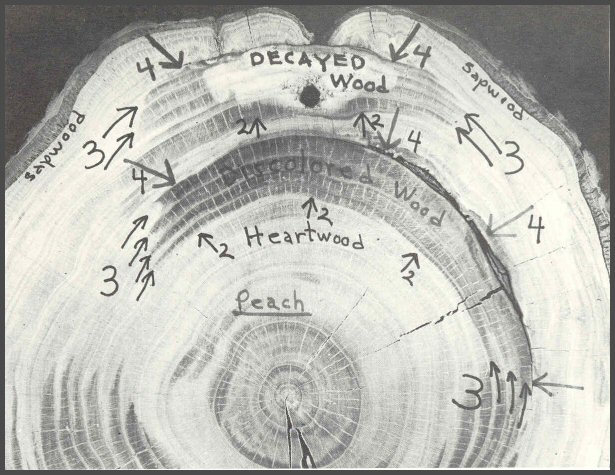 DECAYED
Wood
4
4
sapwood
sapwood
2
2
4
3
3
Discolored Wood
4
2
4
2
Heartwood
2
3
Peach
3